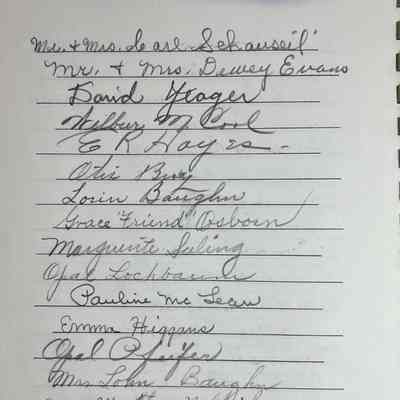 Mr. + Mrs. Carl Schauseil
Mr. + Mrs. Dewey Evans
David Yeager
Wilbur McCool
E R Hayes
Otis
Lorin Baughn
Grace "Friend" Osborn
Marguerite Suling
Opal Lochbaum
Pauline Mc Lean
Emma Higgans
Opal Pfeifer
Mrs John Baughn